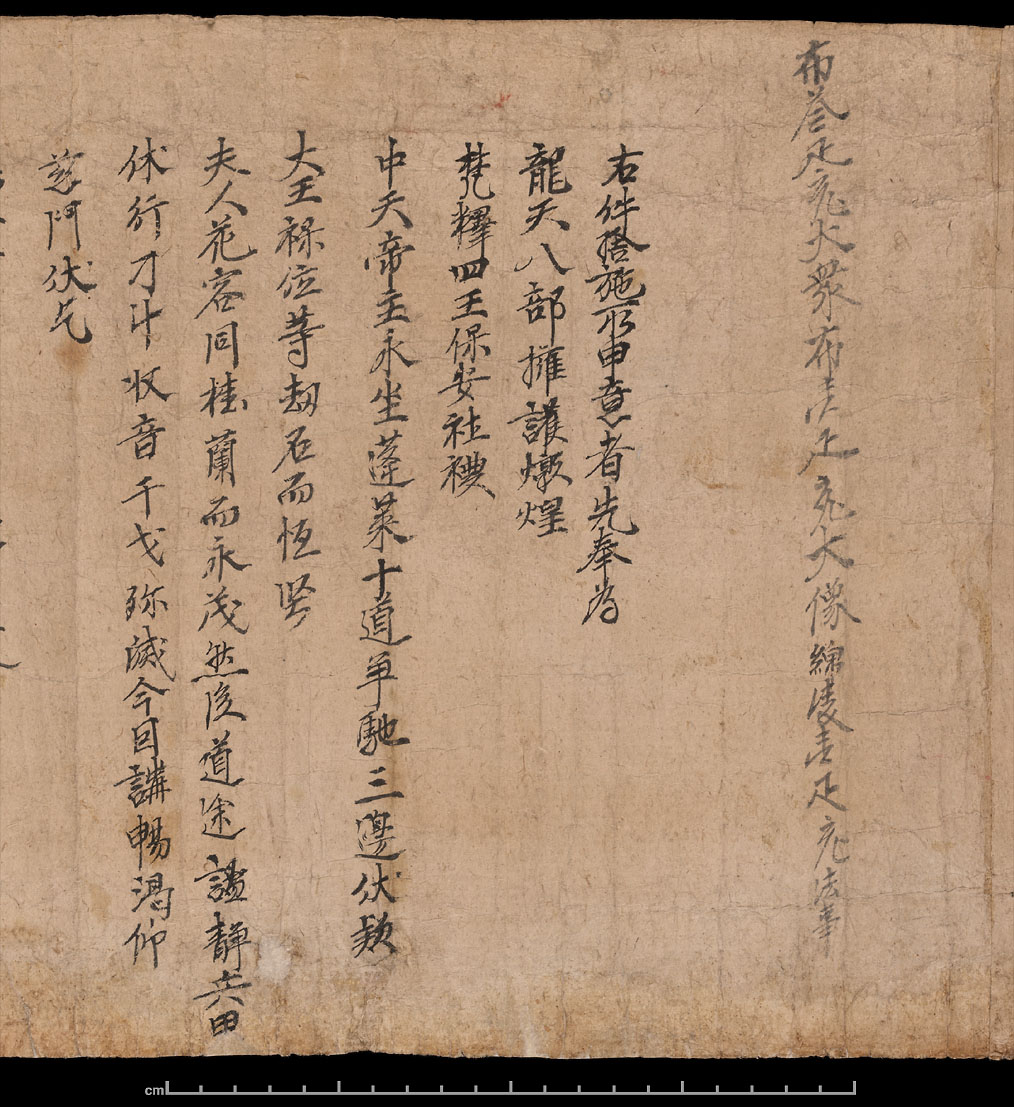 布叁疋充大衆布壹疋充大像綿綾壹疋充法事
右件捨施所申意者先奉為
龍天八部擁護燉煌
梵釋四王保安社禝
中天帝主永坐蓬萊十道爭馳三邊伏欵
大王祿位等劫石而恆堅
夫人花容同桂蘭而永茂然後道途謐靜共田
休行刁斗收音干戈弥滅今因講暢渴仰
慈門伏乞